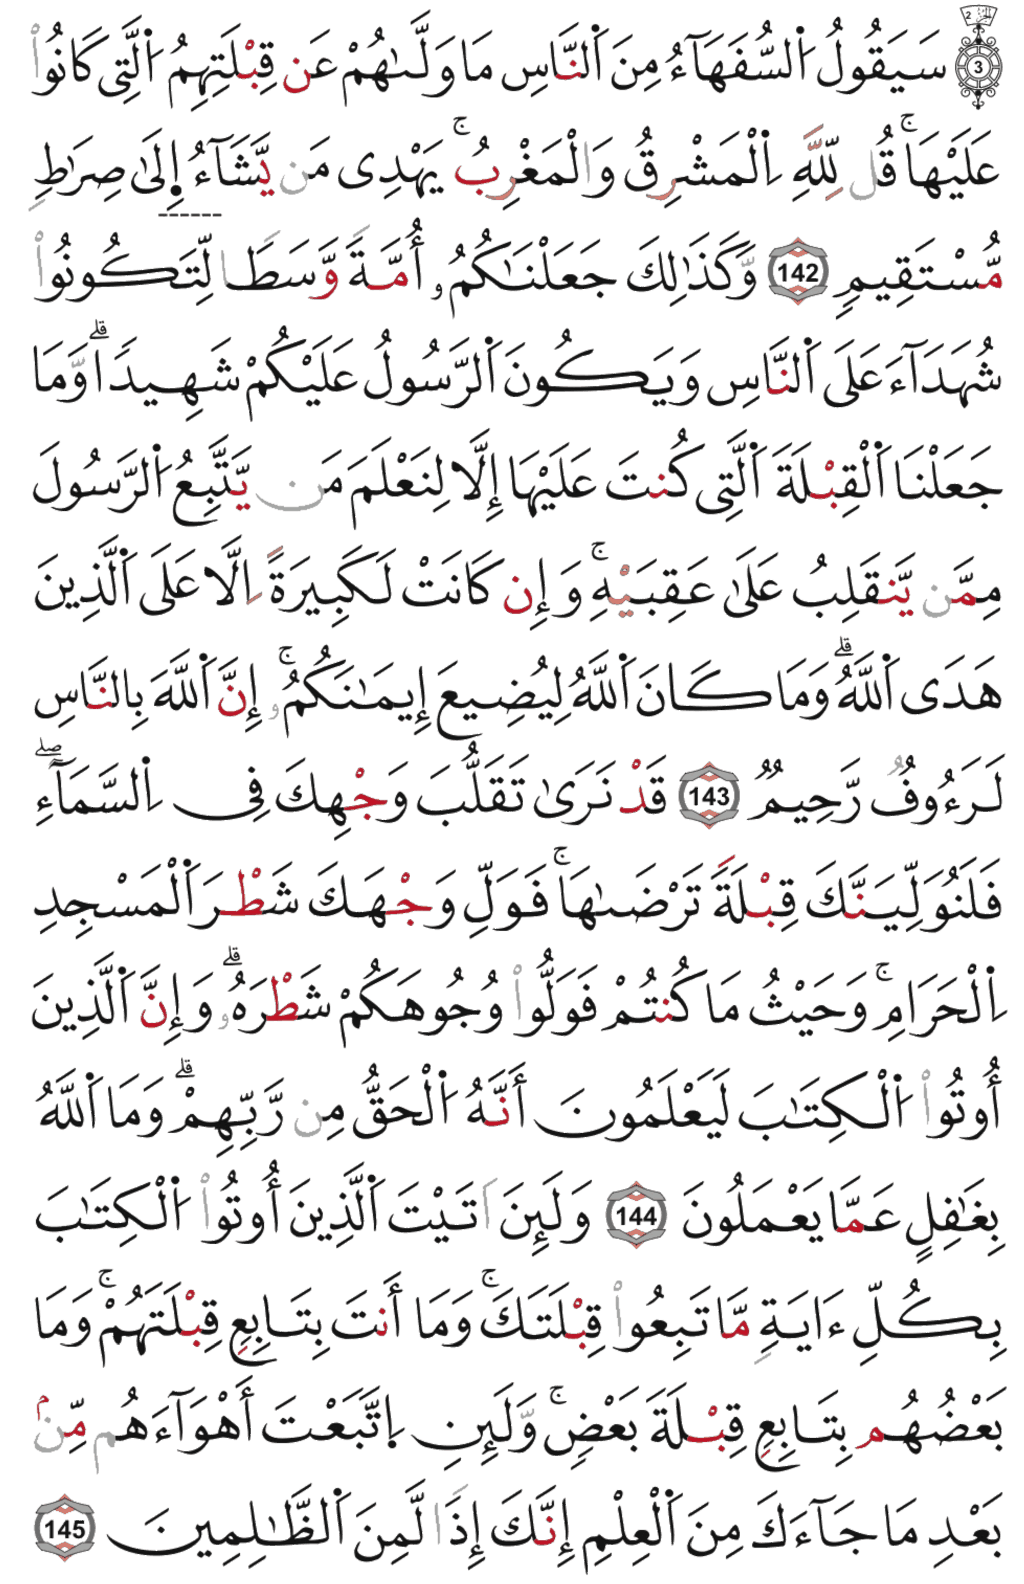 الجزء 2
3 سَيَقُولُ اُ۬لسُّفَهَآءُ مِنَ اَ۬لنَّاسِ مَا وَلَّىٰهُمْ عَن قِبْلَتِهِمُ اُ۬لَّتِي كَانُواْ
عَلَيْهَاۚ قُل لِّلَّهِ اِ۬لْمَشْرِقُ وَالْمَغْرِبُۚ يَهْدِى مَن يَّشَآءُ إِلَىٰ صِرَٰطٍ
مُّسْتَقِيمٍ 142 وَكَذَٰلِكَ جَعَلْنَٰكُمُۥ أُمَّةً وَسَطًا لِّتَكُونُواْ
شُهَدَآءَ عَلَى اَ۬لنَّاسِ وَيَكُونَ اَ۬لرَّسُولُ عَلَيْكُمْ شَهِيدًاۗ وَمَا
جَعَلْنَا اَ۬لْقِبْلَةَ اَ۬لَّتِي كُنتَ عَلَيْهَا إِلَّا لِنَعْلَمَ مَن يَّتَّبِعُ اُ۬لرَّسُولَ
مِمَّن يَّنقَلِبُ عَلَىٰ عَقِبَيْهِۚ وَإِن كَانَتْ لَكَبِيرَةً اِلَّا عَلَى اَ۬لَّذِينَ
هَدَى اَ۬للَّهُۗ وَمَا كَانَ اَ۬للَّهُ لِيُضِيعَ إِيمَٰنَكُمُۥۚ إِنَّ اَ۬للَّهَ بِالنَّاسِ
لَرَءُوفٌ رَّحِيمٌ 143 قَدْ نَرَىٰ تَقَلُّبَ وَجْهِكَ فِى اِ۬لسَّمَآءِۖ
فَلَنُوَلِّيَنَّكَ قِبْلَةً تَرْضَىٰهَاۚ فَوَلِّ وَجْهَكَ شَطْرَ اَ۬لْمَسْجِدِ
اِ۬لْحَرَامِۚ وَحَيْثُ مَا كُنتُمْ فَوَلُّواْ وُجُوهَكُمْ شَطْرَهُۥۗ وَإِنَّ اَ۬لَّذِينَ
أُوتُواْ اُ۬لْكِتَٰبَ لَيَعْلَمُونَ أَنَّهُ اُ۬لْحَقُّ مِن رَّبِّهِمْۗ وَمَا اَ۬للَّهُ
بِغَٰفِلٍ عَمَّا يَعْمَلُونَ 144 وَلَئِنَ اَتَيْتَ اَ۬لَّذِينَ أُوتُواْ اُ۬لْكِتَٰبَ
بِكُلِّ ءَايَةٍ مَّا تَبِعُواْ قِبْلَتَكَۚ وَمَا أَنتَ بِتَابِعٍ قِبْلَتَهُمْۚ وَمَا
بَعْضُهُم بِتَابِعٍ قِبْلَةَ بَعْضٍۚ وَلَئِنِ اِ۪تَّبَعْتَ أَهْوَآءَهُم مِّنۢ
بَعْدِ مَا جَآءَكَ مِنَ اَ۬لْعِلْمِ إِنَّكَ إِذًا لَّمِنَ اَ۬لظَّٰلِمِينَ 145